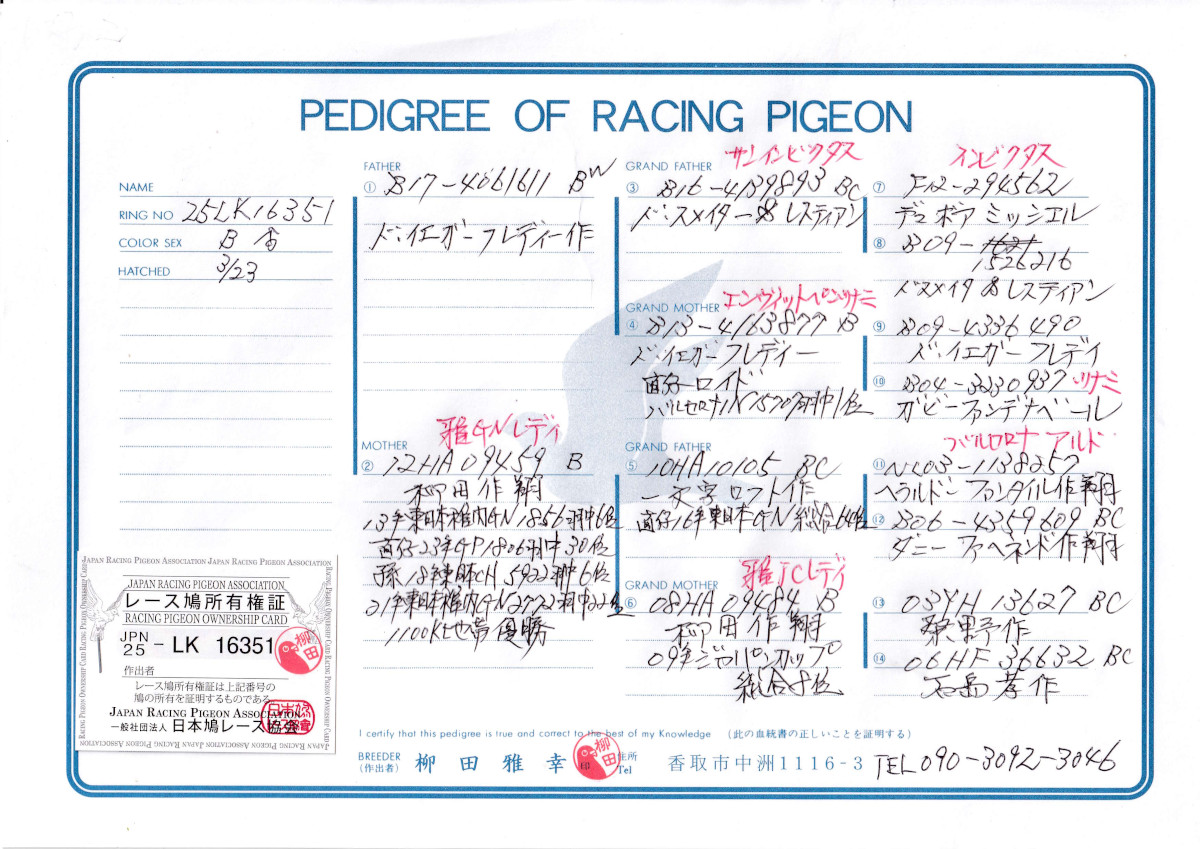 PEDIGREE OF RACING PIGEON
NAME
RING NO 25LK16351
COLOR SEX B
HATCHED 3/23
FATHER
① B17-4061611 BW
ド・イエガーフレディー作
雅GNレディ
MOTHER
② 12HA09459 B
柳田作翔
13年東日本稚内GN1856羽中6位
直仔23年GP1806羽中30位
孫18年東日本CH5922羽中6位
21年東日本稚内GN2772羽中22位
1100K地帯優勝
サンインビクタス
GRAND FATHER
③ B16-4139893 BC
ド・スメイター&レスティアン
エンヴィットペンツナミ
GRAND MOTHER
④ B13-4163877 B
ド・イエガーフレディー
直仔ロイド
バルセロナIN15707羽中1位
GRAND FATHER
⑤ 10HA10105 BC
一文字ロフト作
直仔16年東日本GN総合64位
雅JCレディ
GRAND MOTHER
⑥ 08HA09484 B
柳田作翔
09年ジャパンカップ
総合8位
インビクタス
⑦ F12-294562
デュボア ミッシェル
⑧ B09-
1526216
ドスメイタ&レスティアン
⑨ B09-4336490
ド・イエガーフレディ
⑩ B04-3230937 ツナミ
ガビーファンデナベール
バルセロナ アルド
⑪ NL03-1138257
ヘラルド・ファンタイル作翔
⑫ B06-4359609 BC
ダニーファヘネンド作翔
⑬ 03YH13627 BC
作
⑭ 06HF36632 BC
石島孝作
JAPAN RACING PIGEON ASSOCIATION JAPAN RACING PIGEON ASSOCIATION
JAPAN RACING PIGEON ASSOCIATION
レース鳩所有権証
RACING PIGEON OWNERSHIP CARD
JPN
25 - LK 16351
柳田
作出者
レース鳩所有権証は上記番号の
鳩の所有を証明するものである
JAPAN RACING PIGEON ASSOCIATION
一般社団法人 日本鳩レース協会
I certify that this pedigree is true and correct to the best of my Knowledge (此の血統書の正しいことを証明する)
BREEDER
(作出者) 柳田雅幸 印 柳田
住所
Tel 香取市中洲1116-3 TEL 090-3092-3046